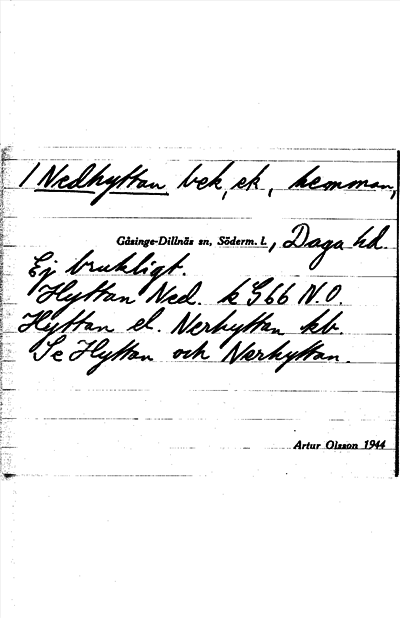 1 Nedhyttan bek, ek, hemman,
Gåsinge-Dillnäs sn, Söderm. l., Daga hd.
Ej brukligt.
Hyttan Ned. k G66 N.O.
Hyttan el. Nerhyttan kb.
Se Hyttan och Nerhyttan.
Artur Olsson 1944